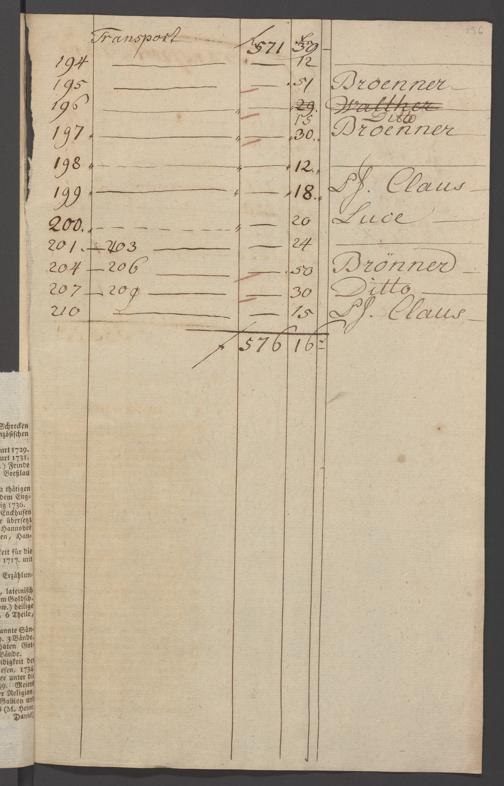 196
Transport f 571 39
194 — — 12
195 — — 51 Broenner
196 — 29. Walther
15 Ditto
197 — — 30. Broenner
198 — — 12
199 — — 18. Pf. Claus
200. — — 20 Luce
201 — 203 — — 24
204 — 206 — — 50 Brönner
207 — 209 — — 30 Ditto
210 — — 15 Pf. Claus
f 576 16
Schrecken
nzösischen
furt 1729.
furt 1731.
Feinde
Breßlau
n thätigen
dem Eng-
ig 1736.
Enckhusen
e übersetzt
Hannover
en, Han-
eit für die
1717. mit
Erzählun-
, lateinisch
m Goldsch.
heilige
6 Theile,
annte Sün-
3 Bände.
Bände.
ndigkeit der
er unter di
r Religion
Daniel